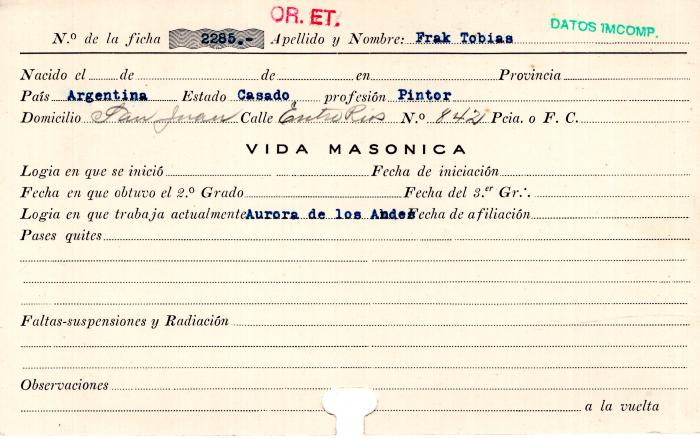 OR. ET.
DATOS IMCOMP.
N.º de la ficha 2285.- Apellido y Nombre: Frak Tobias
Nacido el de de en Provincia
País Argentina Estado Casado profesión Pintor
Domicilio San Juan Calle Entre Rios N.º 842 Pcia. o F. C.
VIDA MASONICA
Logia en que se inició Fecha de iniciación
Fecha en que obtuvo el 2.º Grado Fecha del 3.er Gr∴
Logia en que trabaja actualmente Aurora de los Andes Fecha de afiliación
Pases quites
Faltas-suspensiones y Radiación
Observaciones
a la vuelta